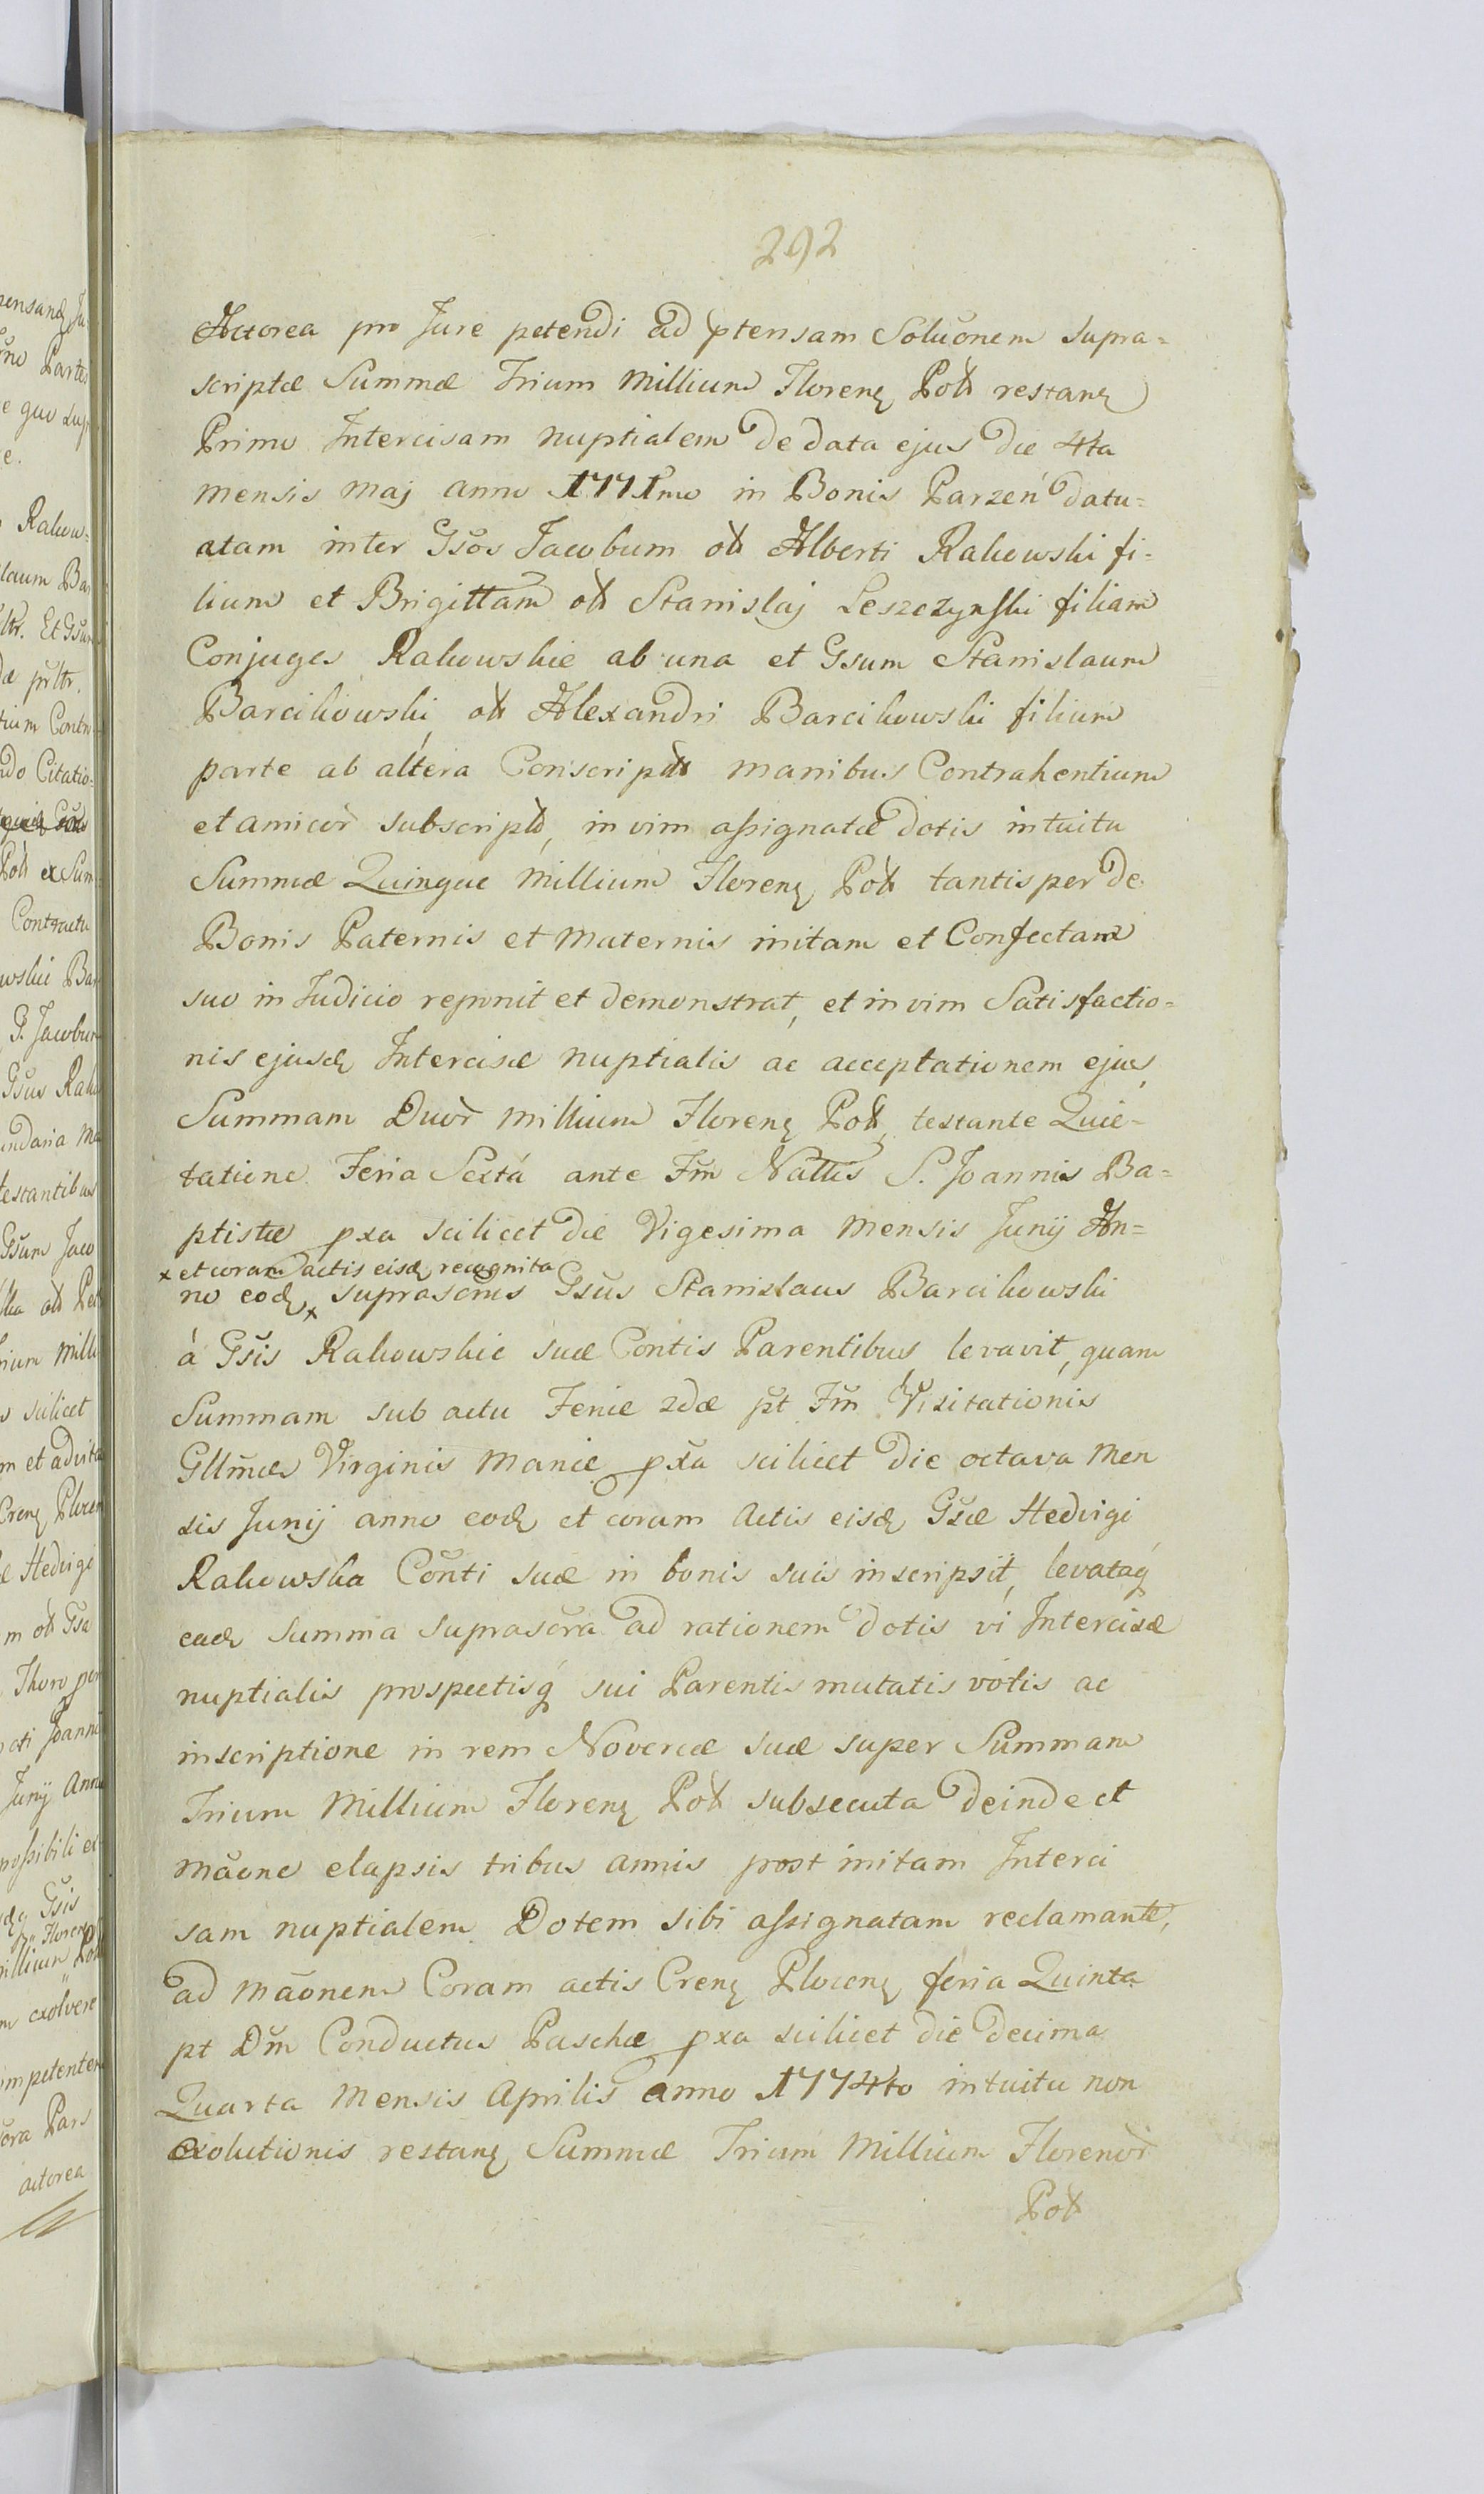 292
Actorea pro Jure petendi ad ptensam Soluõnem supra=
scriptæ Summæ Trium Millium Florenʒ Poll restanʒ
Primo Intercisam nuptialem de data ejus die 4ta
mensis Maj anno 1771mo in Bonis Parzeń datu=
atam inter Gsos Jacobum olł Alberti Rakowski fi=
lium et Brigittam olł Stanislaj Leszczynski filiam
Conjuges Rakowskie ab una et Gsum Stanislaum
Barcikowski olł Alexandri Barcikowski filium
parte ab altera Conscriptã manibus Contrahentium
et amicor subscriptã, in vim assignatæ dotis intuitu
Summæ Quinque Millium Florenʒ Poll tantisper de
Bonis Paternis et Maternis initam et Confectam
suo in Judicio reponit et demonstrat, et in vim Satisfactio=
nis ejusdʒ Intercisæ nuptialis ac acceptationem ejus
Summam Duor Millium Florenʒ Poll testante Quie=
tatione Feria Sexta ante Fm Nattis S. Joannis Ba=
ptistæ pxa scilicet die Vigesima Mensis Junij An=
× et coram actis eisdʒ recognita
no eodʒ × suprascrius Gsus Stanislaus Barcikowski
á Gsis Rakowskie suæ Contis Parentibus levavit, quam
Summam sub actu Feriæ 2dæ pt Fm Visitationis
Gllmæ Virginis Mariæ pxa scilicet die octava Men
sis Junij anno eodʒ et coram Actis eisdʒ Gsæ Hedvigi
Rakowska Conti suæ in bonis suis inscripsit, levataq́
eadʒ Summa suprascra ad rationem dotis vi Intercisæ
nuptialis prospectisq́ sui Parentis mutatis votis ac
inscriptione in rem Novercæ suæ super Summam
Trium Millium Florenʒ Poll subsecuta deinde et
mãone elapsis tribus annis post initam Interci
sam nuptialem Dotem sibi assignatam reclamante,
ad mãonem Coram actis Crenʒ Plocenʒ feria Quinta
pt Dm Conductus Paschæ pxa scilicet die decima
Quarta Mensis Aprilis anno 1774to intuitu non
exolutionis restanʒ Summæ Trium Millium Florenor
Poll